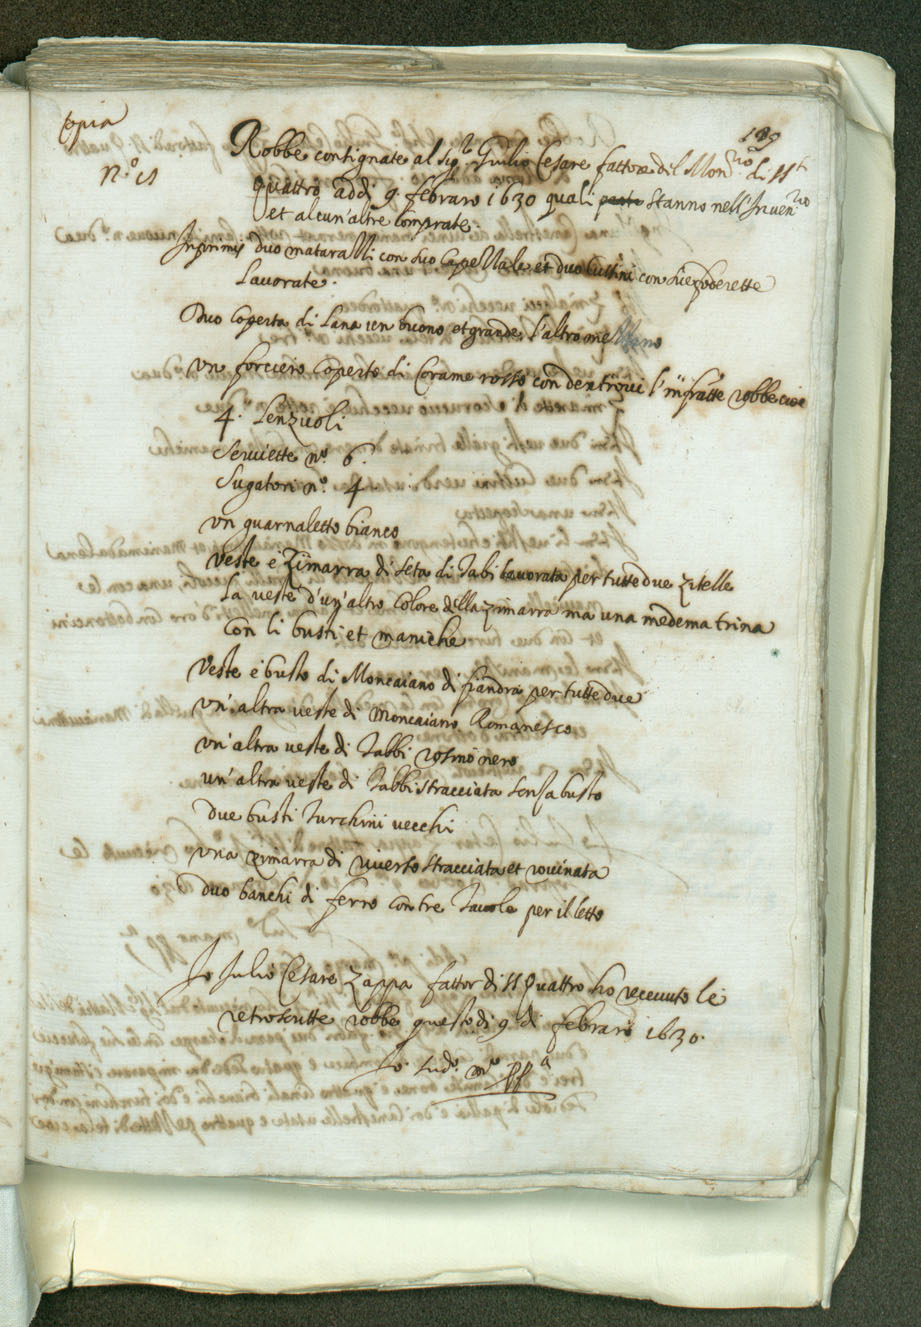 Copia
189
n.º 11
Robbe consignate al sig.r Giulio Cesare fattore del Mon.rio di SS.ti
Quattro addi 9 febraro 1630 quali stanno nell'Inven.rio
et alcun'altre comprate.
Inprimis duo mataralli con suo capellale et duo cuscini con sue foderette
Lavorate.
Duo coperta di Lana un buono et grande, l'altro mezzano
Un forciero coperto di Corame rosso con dentrovi l'infratte robbe cioe
4. Lenzuoli
Serviette n.º 6.
Sugatori n.º 4
un guarnaletto bianco
Veste e Zimarra di seta di Tabi lavorata per tutte due zitelle
La veste d'un'altro colore della zimarra ma una medema trina
con li busti et maniche
Veste e busto di Moncaiano di fiandra per tutte due
un'altra veste di Moncaiano Romanesco
un'altra veste di Tabbi rosino nero
un'altra veste di Tabbi stracciata senza busto
due busti Turchini vecchi
una zimarra di riverso stracciata et rovinata
duo banchi di ferro con tre Tavole per il letto
Io Iulio Cesare Zappa fattor di SS Quattro ho recevuto le
retroscritte robbe questo di 9 di febraro 1630.
Io sud.º m.º pp.a